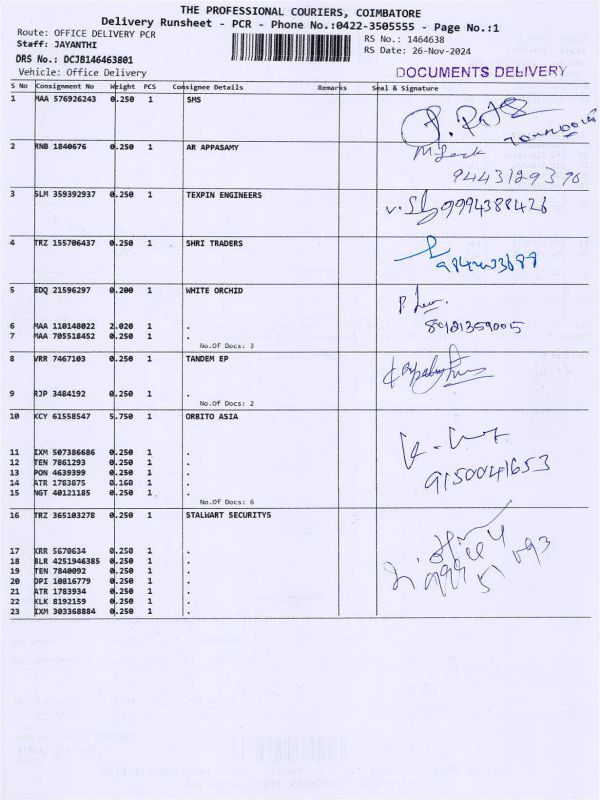 THE PROFESSIONAL COURIERS, COIMBATORE
Delivery Runsheet - PCR - Phone No.:0422-3505555 - Page No.:1
Route: OFFICE DELIVERY PCR
Staff: JAYANTHI
DRS No.: DCJB146463801
Vehicle: Office Delivery
RS No.: 1464638
RS Date: 26-Nov-2024
DOCUMENTS DELIVERY
S No Consignment No Weight PCS Consignee Details Remarks Seal & Signature
1 MAA 576926243 0.250 1 SMS
2 RNB 1840676 0.250 1 AR APPASAMY
9443129370
3 SLM 359392937 0.250 1 TEXPIN ENGINEERS
9994388426
4 TRZ 155706437 0.250 1 SHRI TRADERS
5 EDQ 21596297 0.200 1 WHITE ORCHID
6 MAA 110148022 2.020 1 .
7 MAA 705518452 0.250 1 .
No.Of Docs: 3
8 VRR 7467103 0.250 1 TANDEM EP
9 RJP 3484192 0.250 1 .
No.Of Docs: 2
10 KCY 61558547 5.750 1 ORBITO ASIA
9150041653
11 IXM 507386686 0.250 1 .
12 TEN 7861293 0.250 1 .
13 PON 4639399 0.250 1 .
14 ATR 1783875 0.160 1 .
15 NGT 40121185 0.250 1 .
No.Of Docs: 6
16 TRZ 365103278 0.250 1 STALWART SECURITYS
17 KRR 5670634 0.250 1 .
18 BLR 4251946385 0.550 1 .
19 TEN 7840092 0.250 1 .
20 DPI 10816779 0.250 1 .
21 ATR 1783934 0.250 1 .
22 KLK 8192159 0.250 1 .
23 IXM 303368884 0.250 1 .